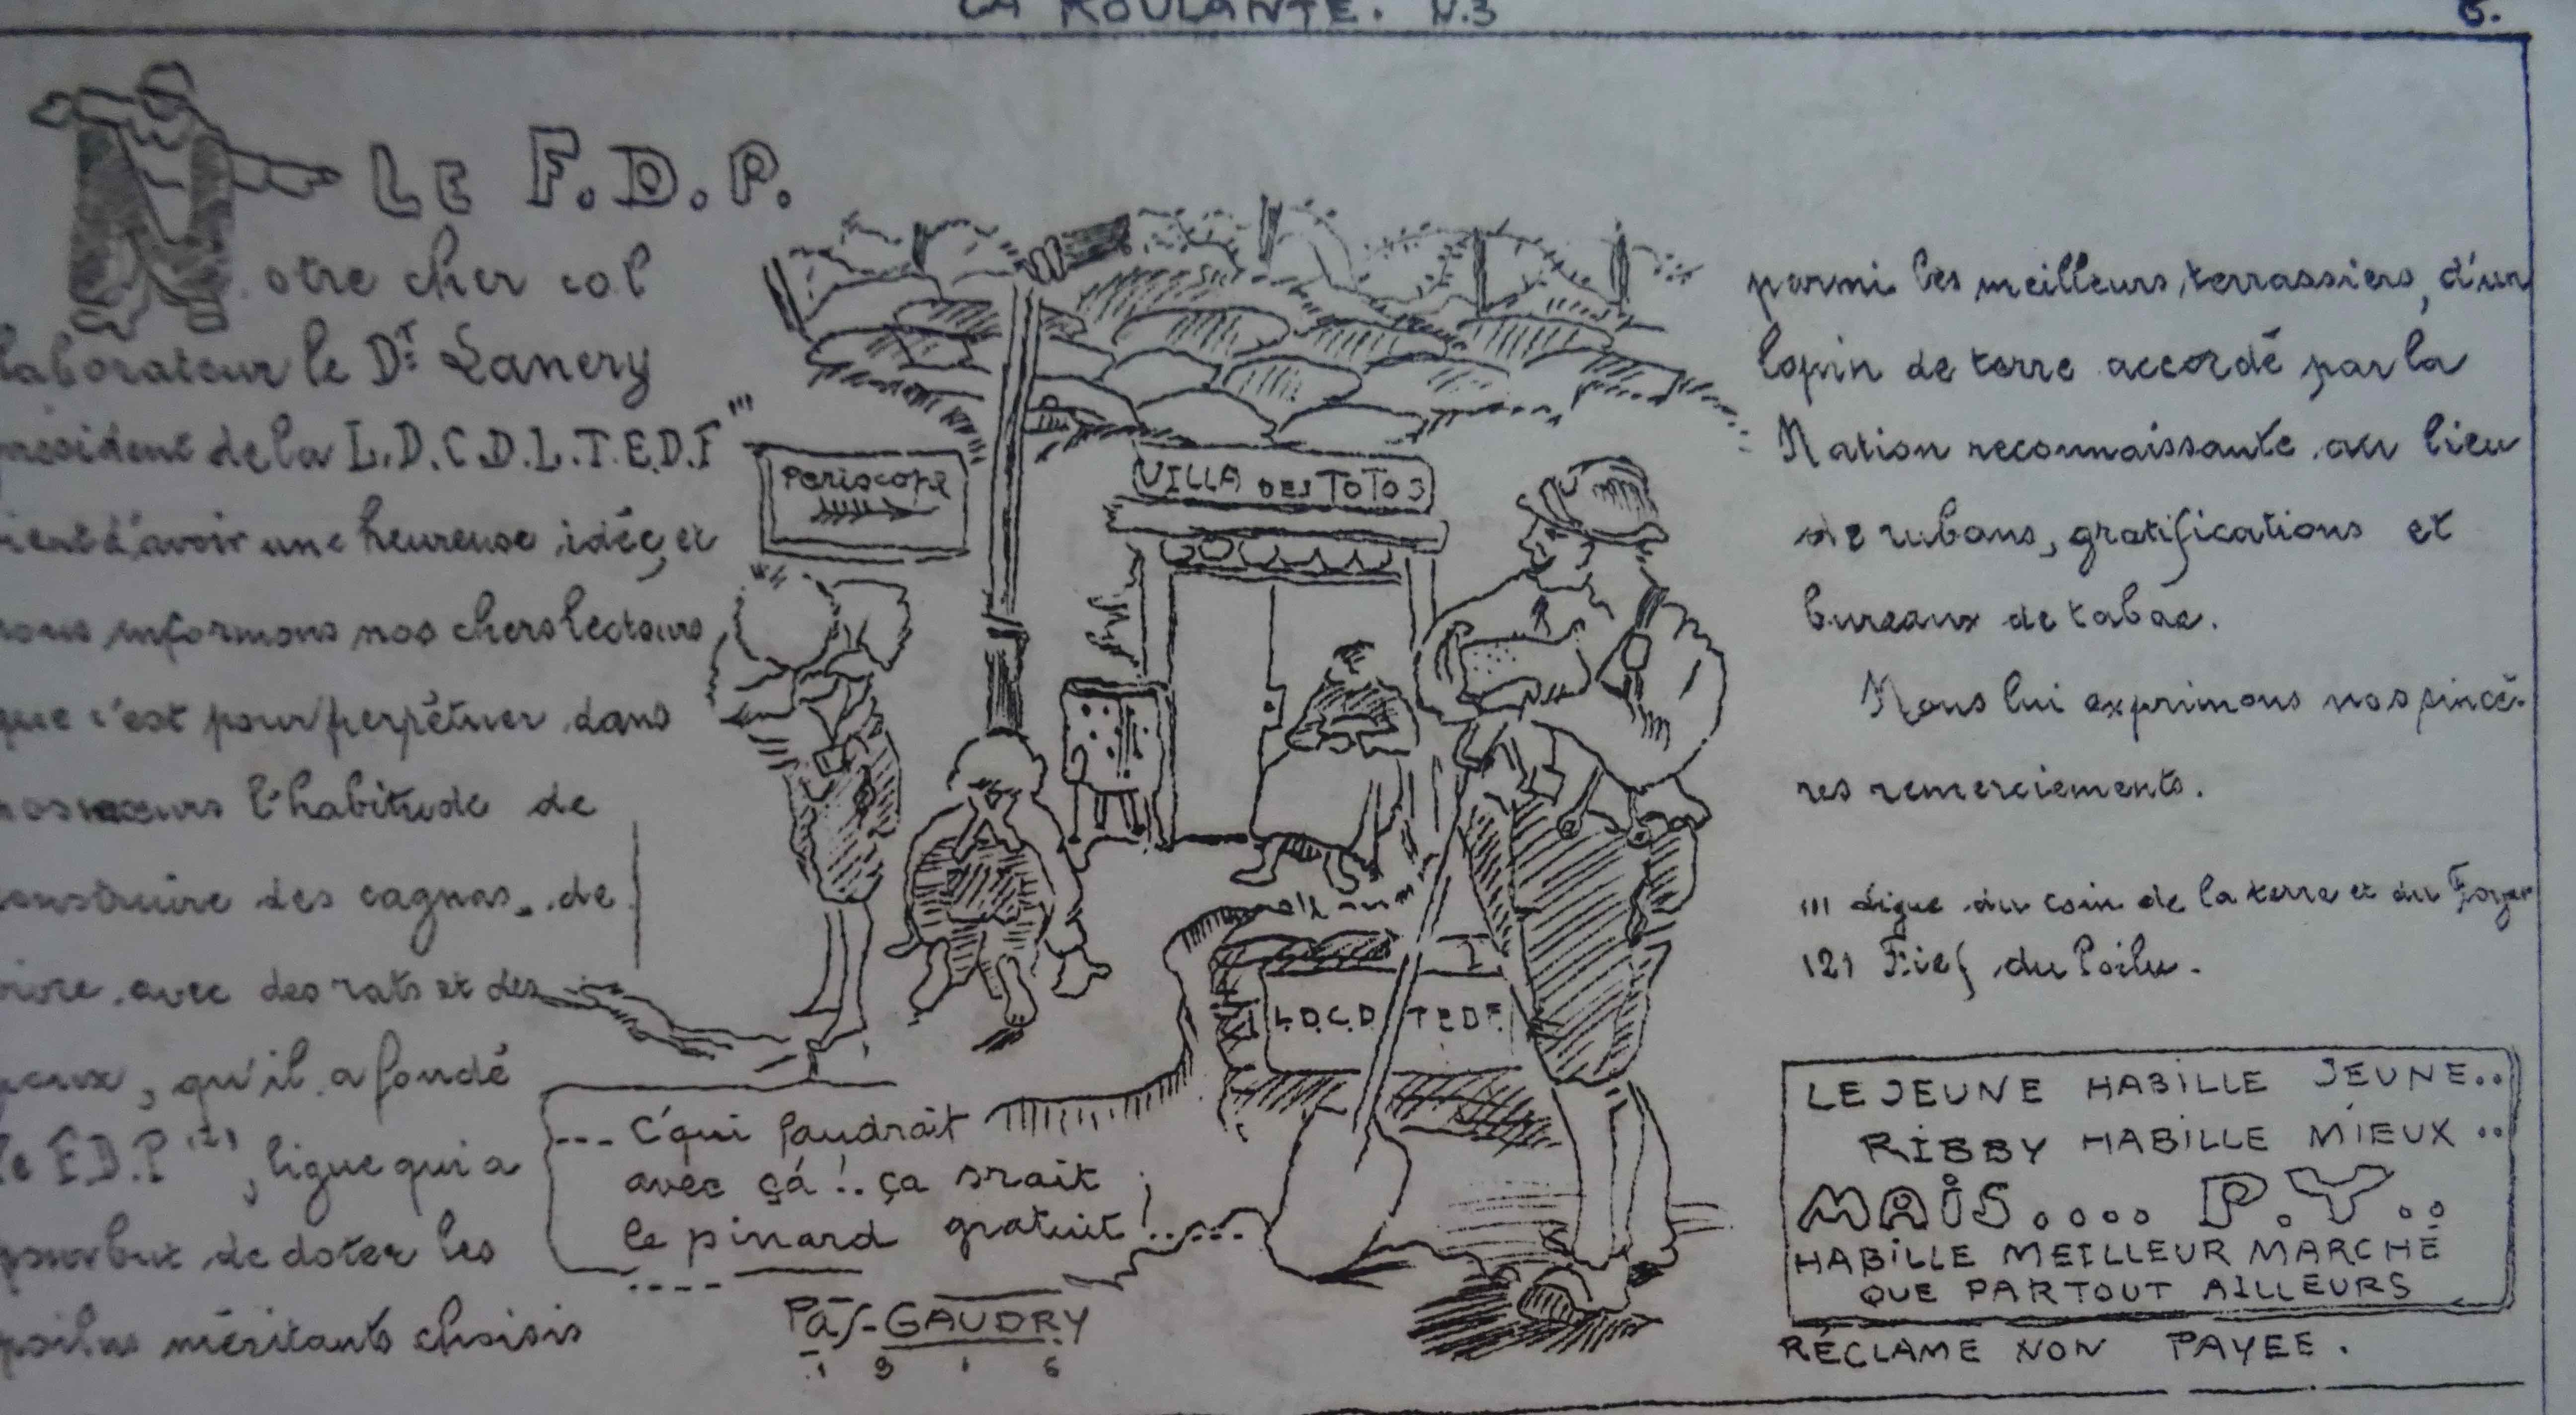 LA ROULANTE. N.3
6.
LE F.D.P.
otre cher col
laborateur le Dr Lanery
président de la L.D.C.D.L.T.E.D.F (1)
vient d'avoir une heureuse idée, et
nous informons nos chers lecteurs
que c'est pour perpétuer dans
nos mœurs l'habitude de
construire des cagnas, de
vivre avec des rats et des
, qu'il a fondé
le F.D.P (2), ligue qui a
pour but de doter les
poilus méritants choisis
PERISCOPE
VILLA DES TOTOS
L.D.C.D TEDF
--- C'qui faudrait
avec çá!.. ça srait
le pinard gratuit!.....
Pas-GAUDRY
1 9 1 6
parmi les meilleurs terrassiers, d'un
lopin de terre accordé par la
Nation reconnaissante au lieu
de rubans, gratifications et
bureaux de tabac.
Nous lui exprimons nos sincè-
res remerciements.
(1) Ligue du coin de la terre et du Foyer
(2) Fief du Poilu.
LE JEUNE HABILLE JEUNE..
RIBBY HABILLE MIEUX..
MAIS.... P.Y..
HABILLE MEILLEUR MARCHÉ
QUE PARTOUT AILLEURS
RÉCLAME NON PAYEE.